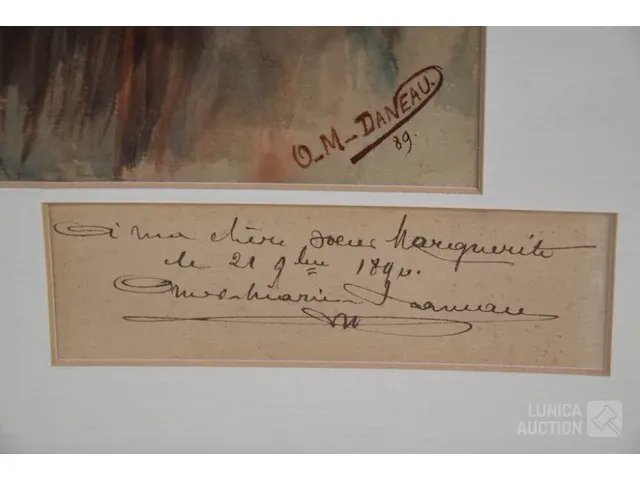 O-M-DANEAU.
89.
a ma chère soeur Marguerite
le 21 9bre 1890.
Daneau
LUNICA
AUCTION